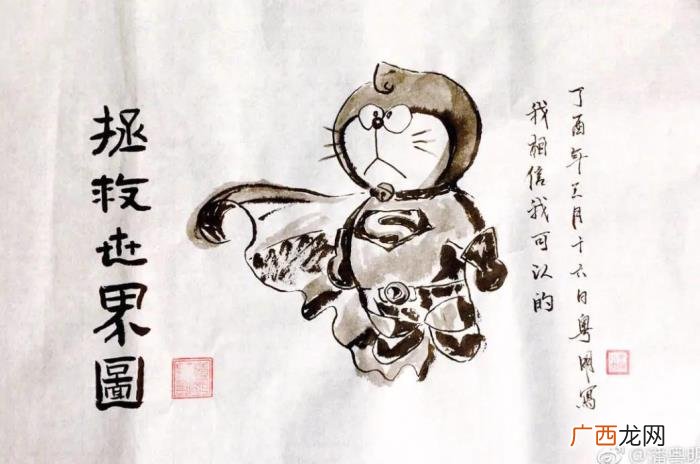 丁酉年三月十六日粤明寫
我相信我可以的
拯救世界圖
广西龙网
@潘粤明